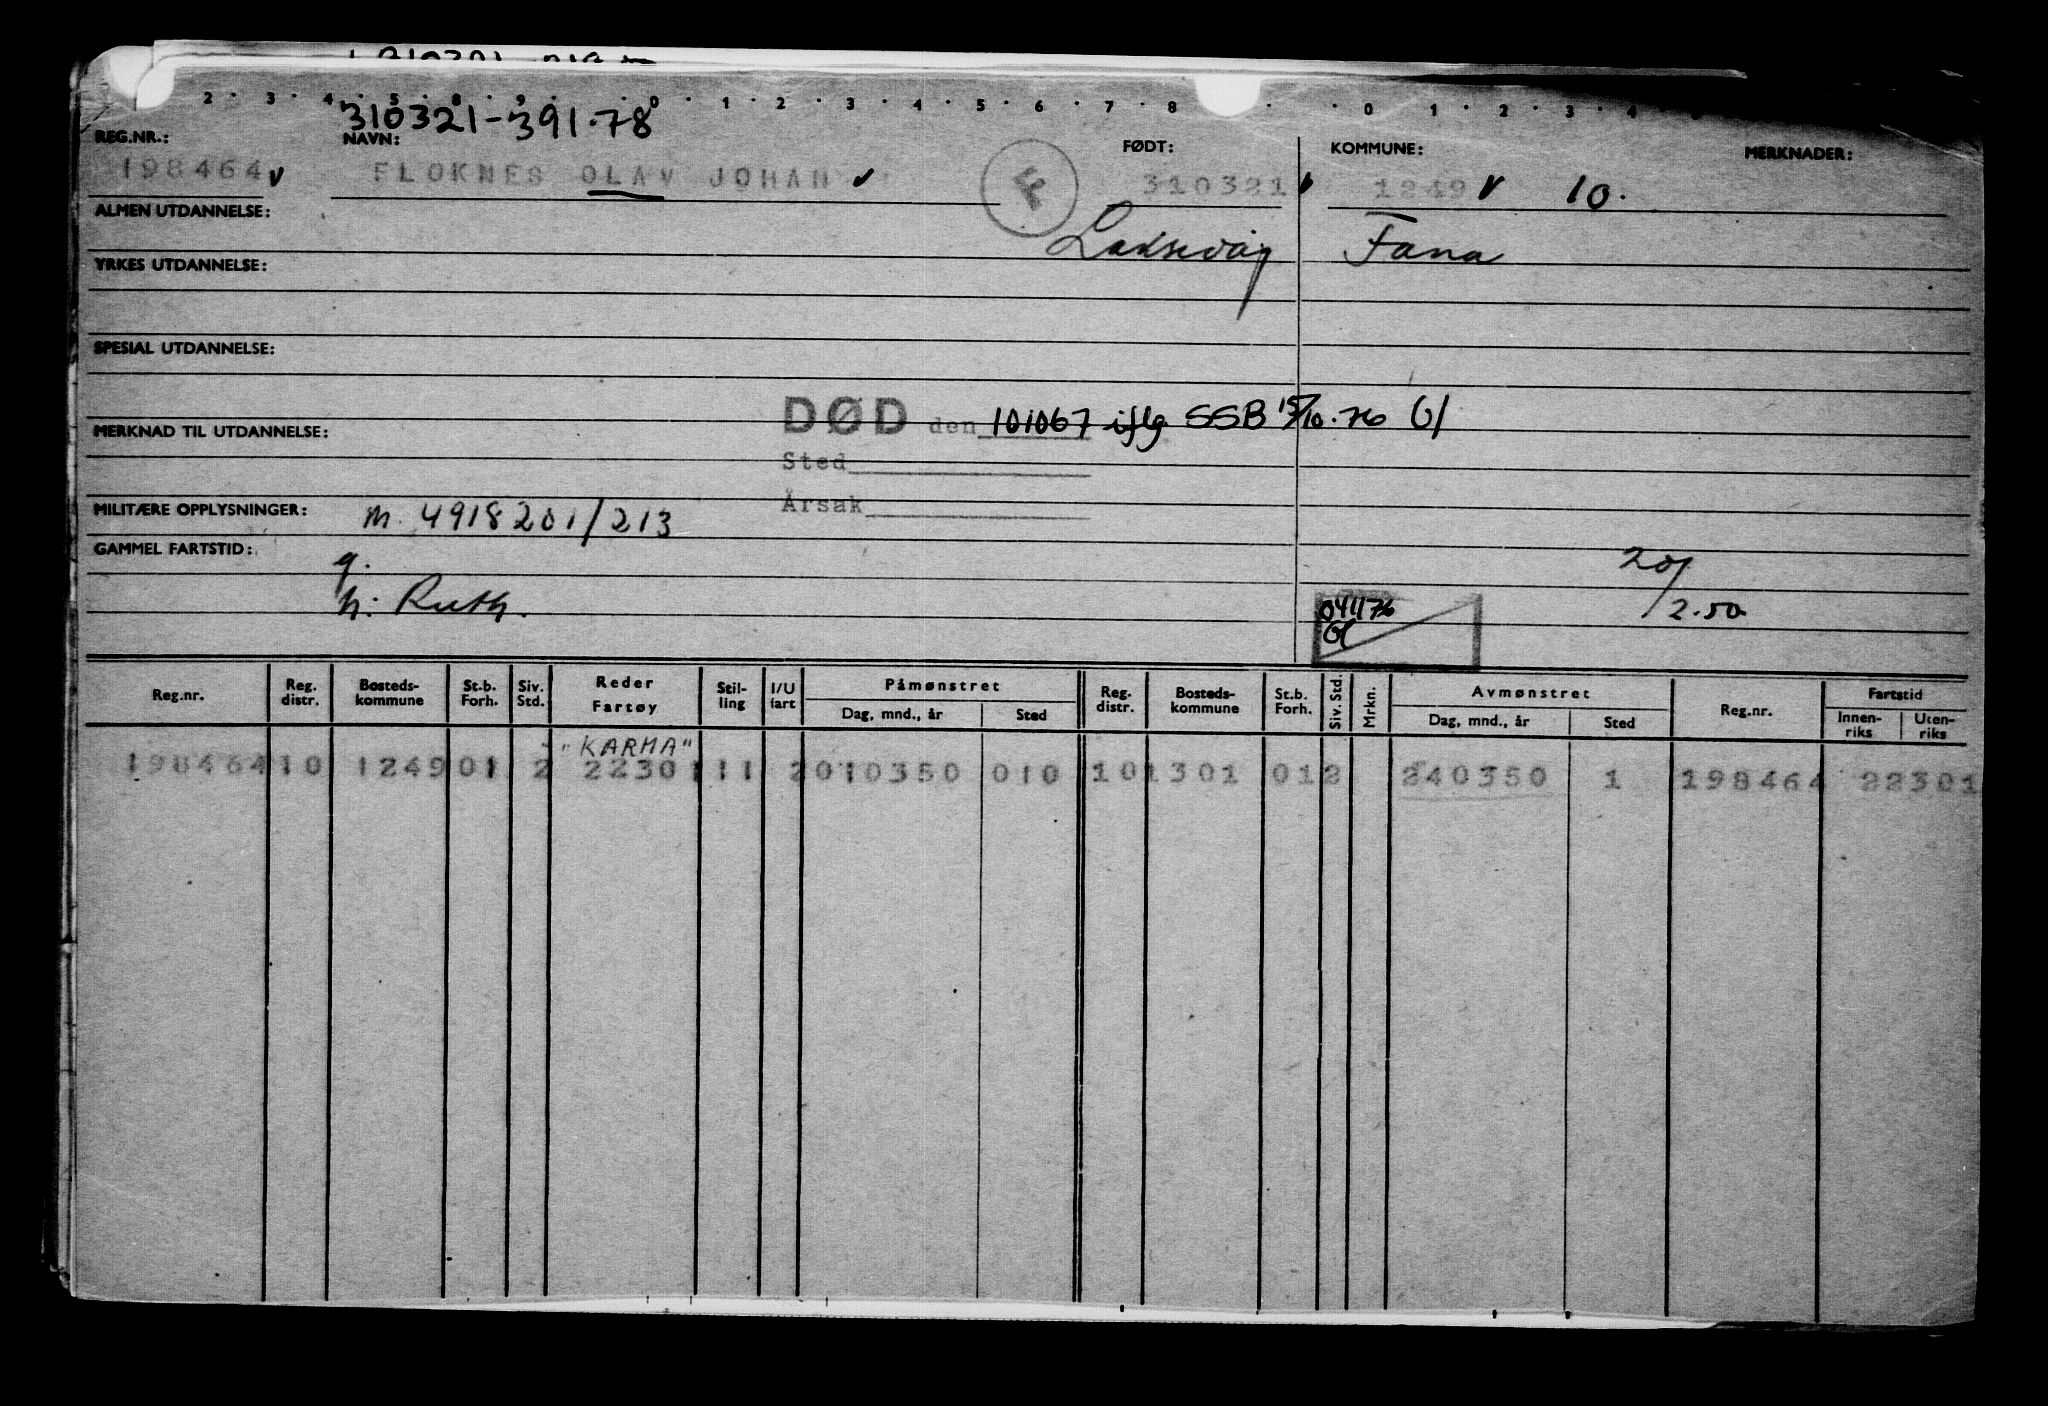 2 · 3 · 4 · 5 · 8 · 9 · 0 · 1 · 2 · 3 · 4 · 5 · 6 · 7 · 8 · 0 · 1 · 2 · 3 · 4
310321-391.78
REG.NR.: NAVN: FØDT: KOMMUNE: MERKNADER:
198464 v FLOKNES OLAV JOHAN v 310321 v 1249 v 10.
ALMEN UTDANNELSE:
Laksevåg Fana
YRKES UTDANNELSE:
SPESIAL UTDANNELSE:
DØD den 101067 iflg. SSB 15/10.76
MERKNAD TIL UTDANNELSE:
Sted
MILITÆRE OPPLYSNINGER: m. 4918201/213 Årsak
GAMMEL FARTSTID: g. 20/2.50
h. Ruth. 041176
Reg.nr. Reg. distr. Bosteds-kommune St.b. Forh. Siv. Std. Reder Fartøy Stil-ling I/U fart Påmønstret Dag, mnd., år Sted Reg. distr. Bosteds-kommune St.b. Forh. Siv. Std. Mrkn. Avmønstret Dag, mnd., år Sted Reg.nr. Fartstid Innen-riks Uten-riks
"KARMA"
198464 10 1249 01 2 22301 11 2 010350 010 10 1301 01 2 240350 1 198464 22301